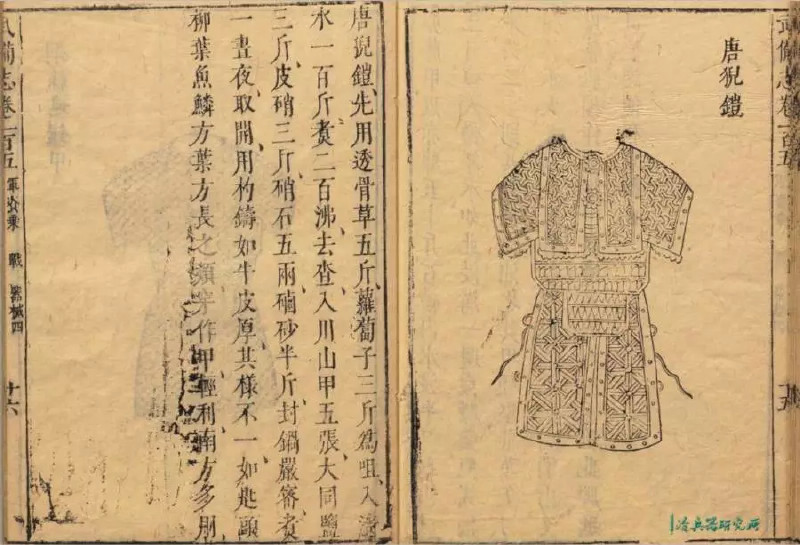 武備志卷一百五
十五
唐猊鎧
唐猊鎧先用透骨草五斤蘿蔔子三斤為咀入
水一百斤煮二百沸去查入川山甲五張大同鹽
三斤皮硝三斤硝石五兩砂半斤封鍋嚴審煮
一晝夜取開用杓鑄如牛皮厚其樣不一如匙頭
柳葉魚鱗方葉方長之類穿作甲輕利南方多用
武備志卷一百五 軍資乘 戰 器械四 十六
冷兵器研究所